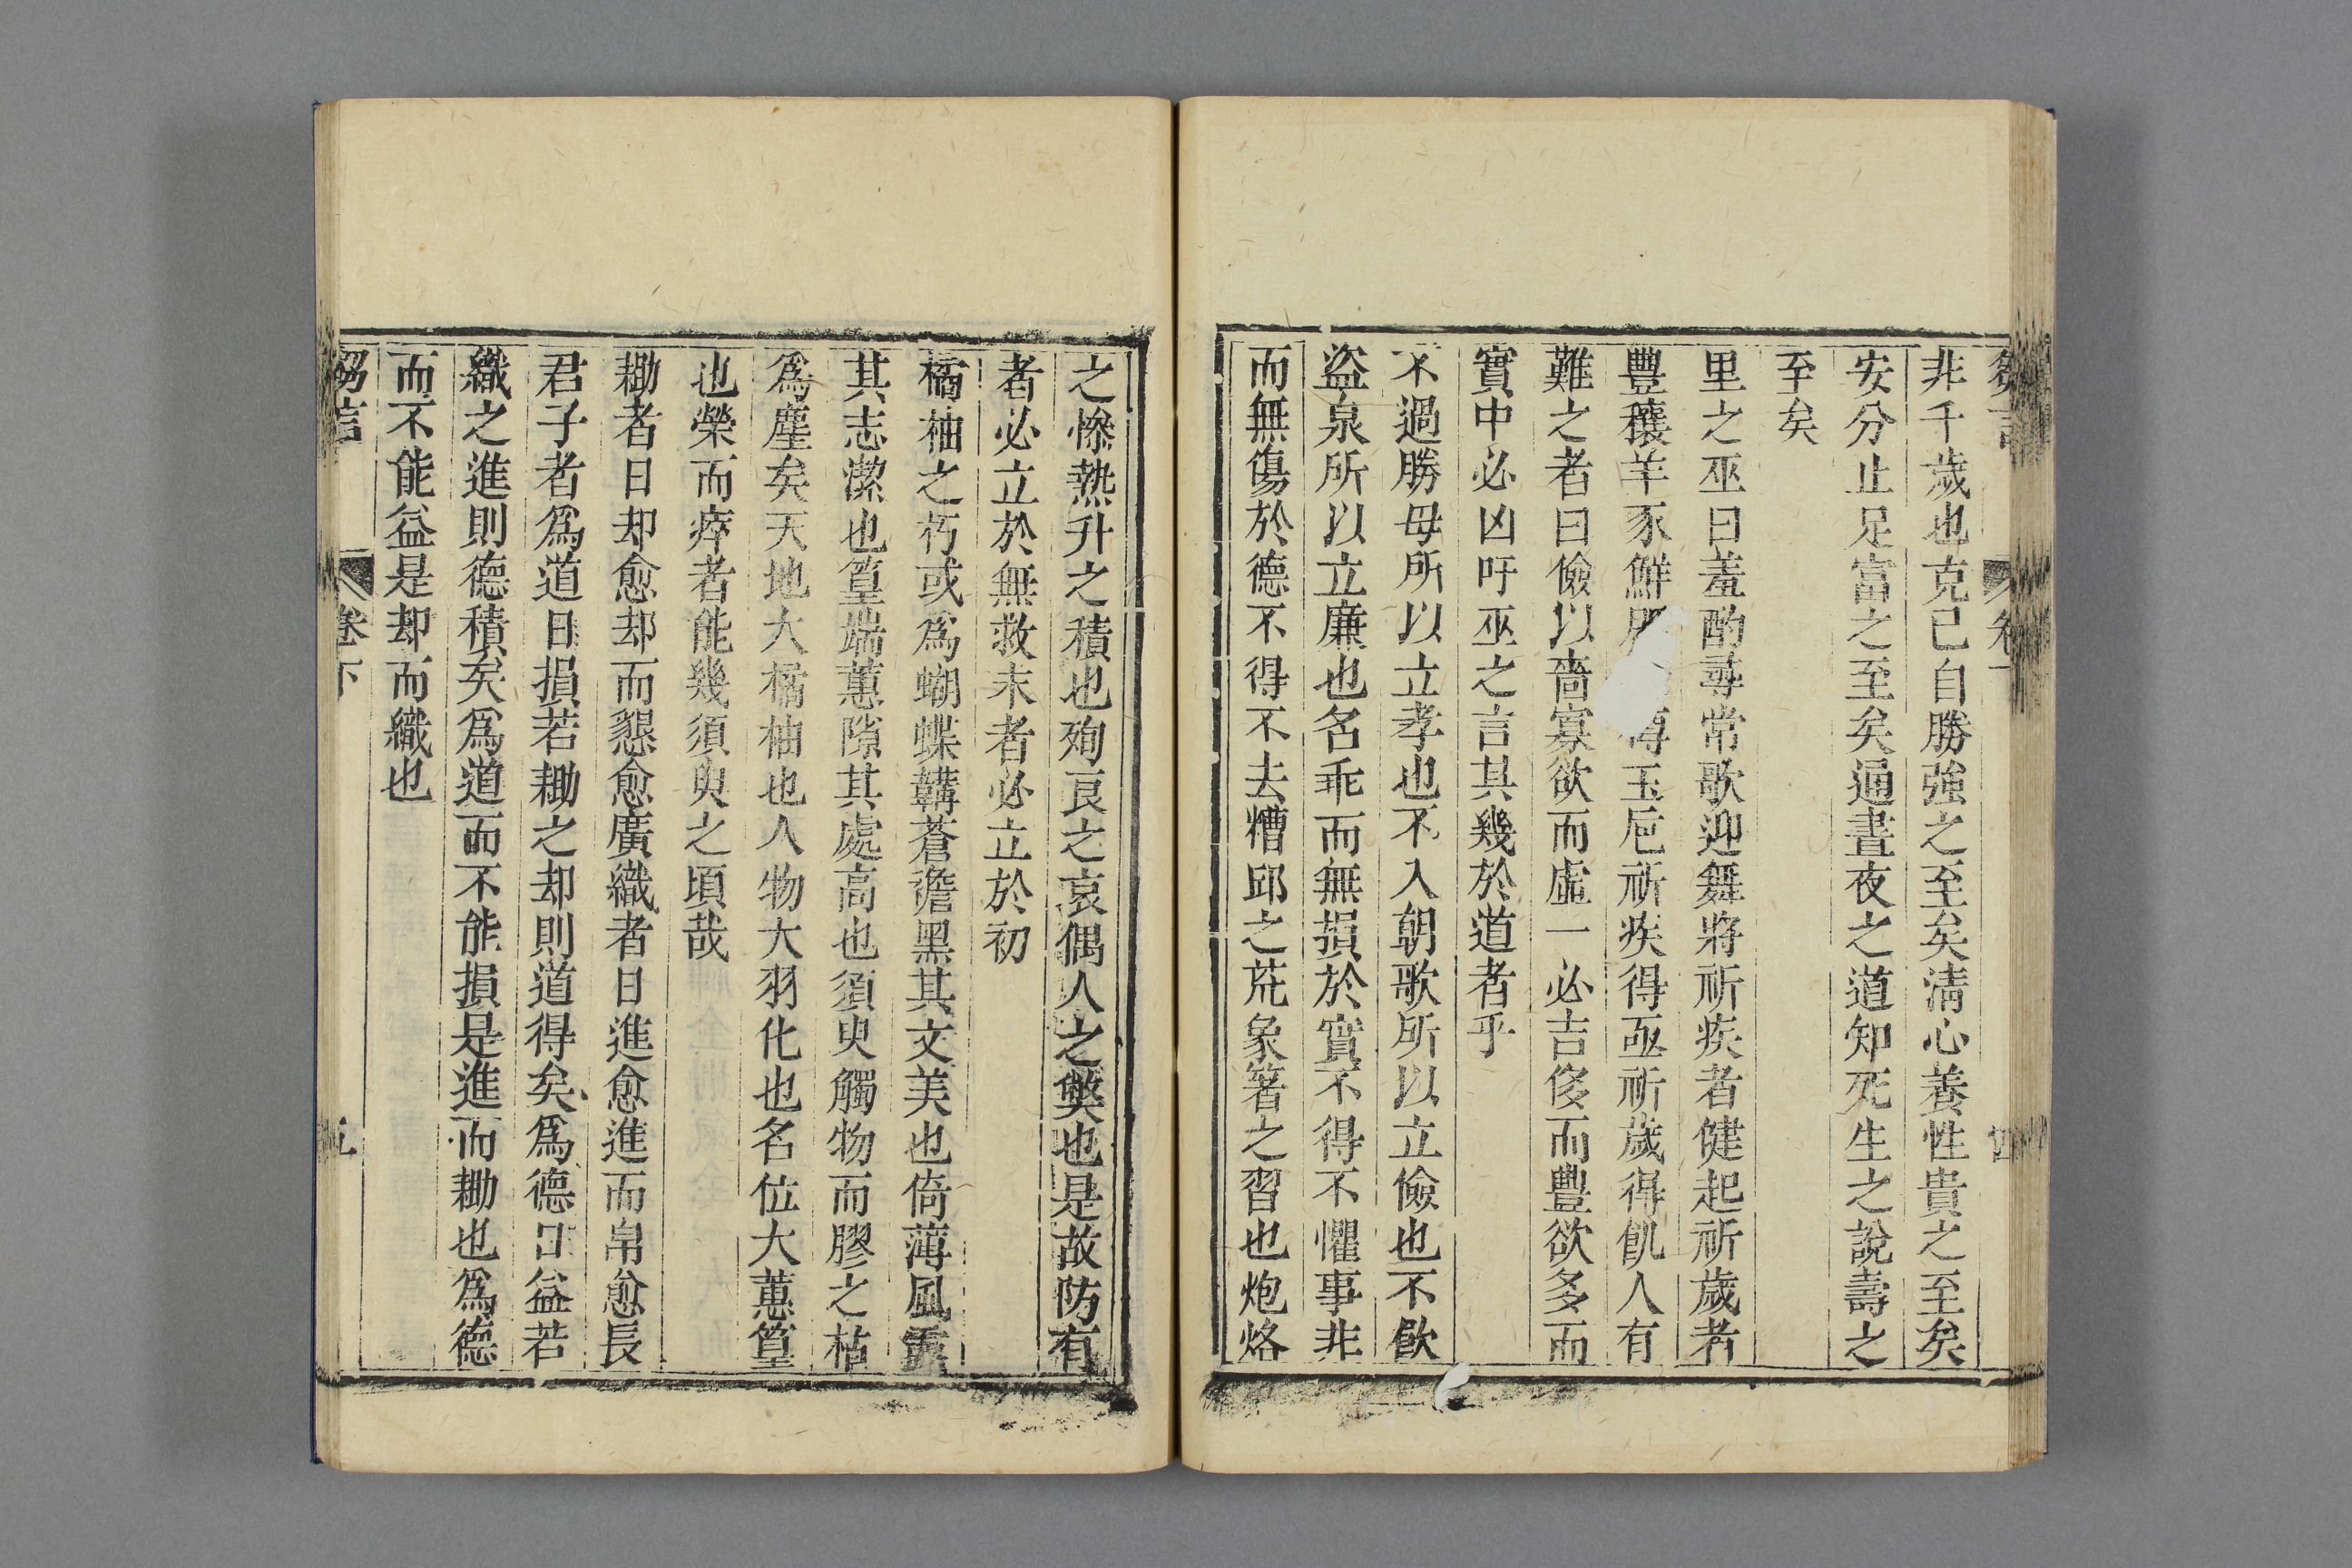 非千歲也克己自勝強之至矣淸心養性貴之至矣
安分止足富之至矣通晝夜之道知死生之說壽之
至矣
里之巫曰羞酌尋常歌迎舞將祈疾者健起祈歲者
豐穰羊豕鮮玉巵祈疾得亟祈歲得飢人有
難之者曰儉以嗇寡欲而虛一必吉侈而豐欲多而
實中必凶吁巫之言其幾於道者乎
不過勝母所以立孝也不入朝歌所以立儉也不飮
盜泉所以立廉也名乖而無損於實不得不懼事非
而無傷於德不得不去糟邱之荒象箸之習也炮烙
之慘熱升之積也殉良之哀偶人之獘也是故防有
者必立於無救末者必立於初
橘柚之朽或爲蝴蝶韝蒼襜黑其文美也倚薄風露
其志潔也篁端蕙隙其處高也須臾觸物而膠之槁
爲塵矣天地大橘柚也人物大羽化也名位大蕙篁
也榮而瘁者能幾須臾之頃哉
耡者日却愈却而懇愈廣織者日進愈進而帛愈長
君子者爲道日損若耡之却則道得矣爲德日益若
織之進則德積矣爲道而不能損是進而耡也爲德
而不能益是却而織也
芻言
卷下
五